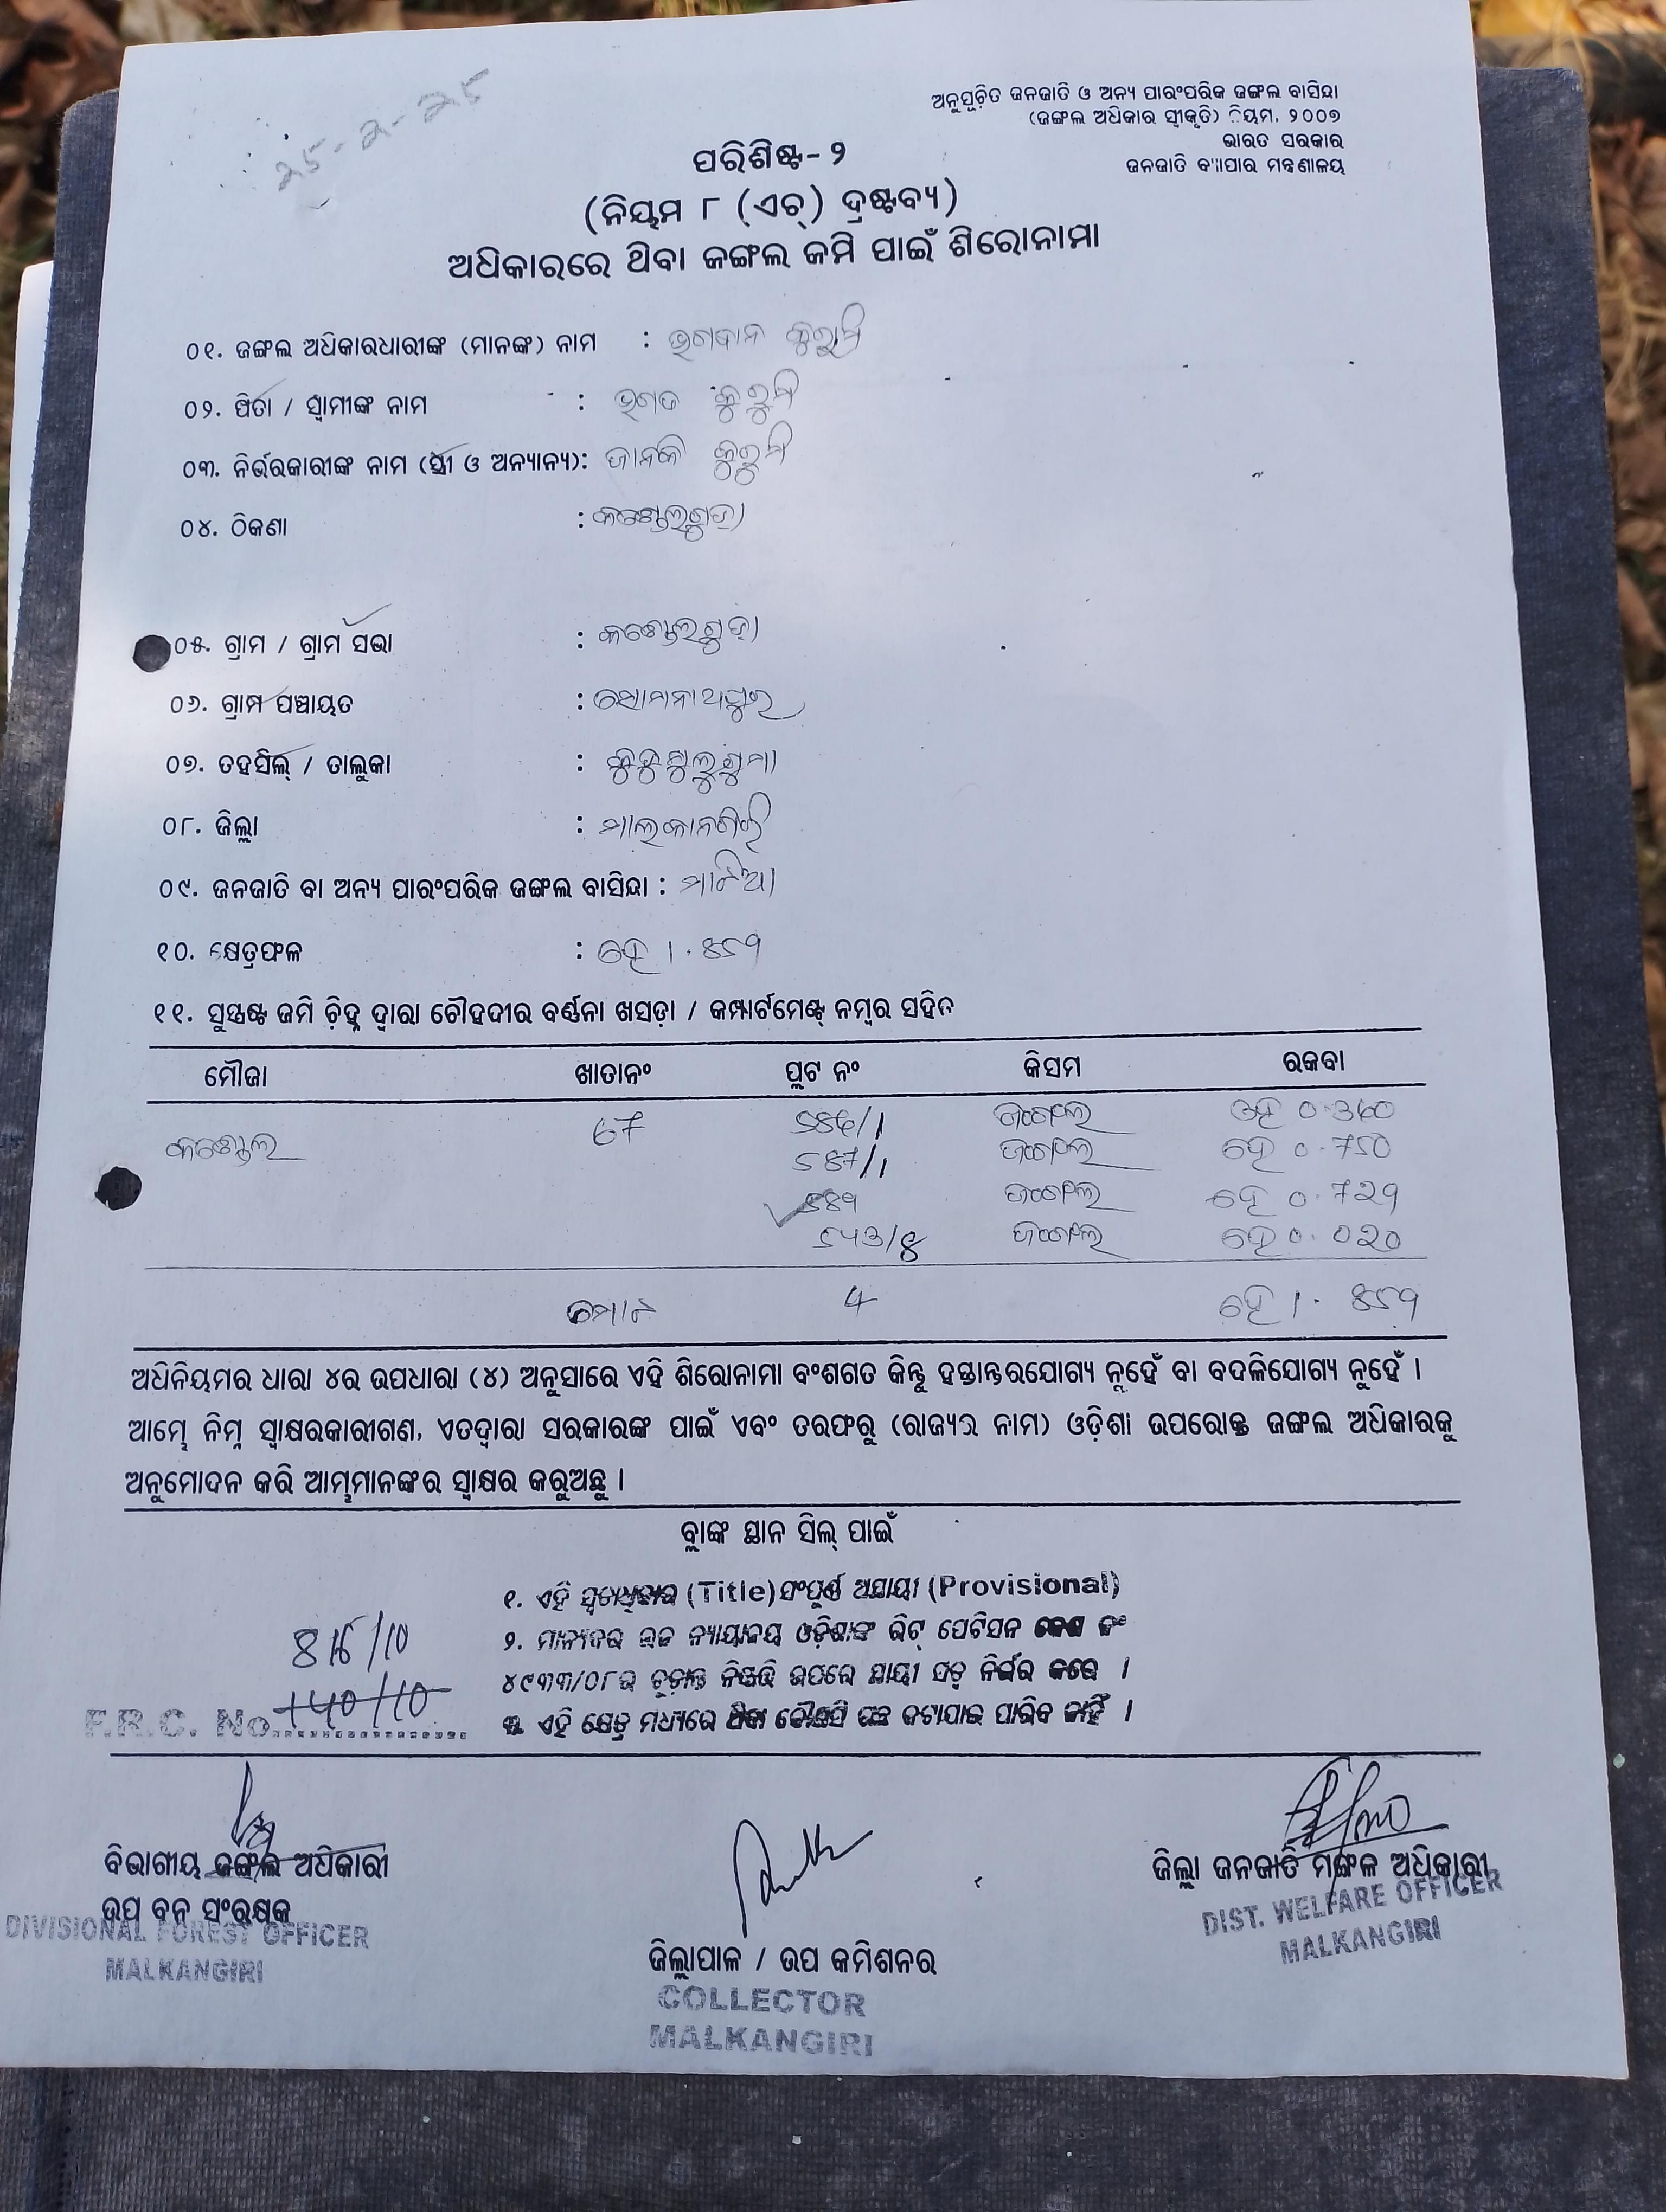 ୨୫-୨-୨୫
ଅନୁସୂଚିତ ଜନଜାତି ଓ ଅନ୍ୟ ପାରଂପରିକ ଜଙ୍ଗଲ ବାସିନ୍ଦା
(ଜଙ୍ଗଲ ଅଧିକାର ସ୍ଵୀକୃତି) ନିୟମ, ୨୦୦୭
ଭାରତ ସରକାର
ଜନଜାତି ବ୍ୟାପାର ମନ୍ତ୍ରଣାଳୟ
ପରିଶିଷ୍ଟ-୨
(ନିୟମ ୮ (ଏଚ୍) ଦ୍ରଷ୍ଟବ୍ୟ)
ଅଧିକାରରେ ଥିବା ଜଙ୍ଗଲ ଜମି ପାଇଁ ଶିରୋନାମା
୦୧. ଜଙ୍ଗଲ ଅଧିକାରଧାରୀଙ୍କ (ମାନଙ୍କ) ନାମ : ଭଗବାନ
୦୨. ପିତା / ସ୍ଵାମୀଙ୍କ ନାମ : ଭଗତ
୦୩. ନିର୍ଭରକାରୀଙ୍କ ନାମ (ସ୍ତ୍ରୀ ଓ ଅନ୍ୟାନ୍ୟ): ଜାନକି
୦୪. ଠିକଣା :
୦୫. ଗ୍ରାମ / ଗ୍ରାମ ସଭା :
୦୬. ଗ୍ରାମ ପଞ୍ଚାୟତ : ସୋମନାଥପୁର
୦୭. ତହସିଲ୍ / ତାଲୁକା : କୁଡୁମୁଲୁଗୁମା
୦୮. ଜିଲ୍ଲା : ମାଲକାନଗିରି
୦୯. ଜନଜାତି ବା ଅନ୍ୟ ପାରଂପରିକ ଜଙ୍ଗଲ ବାସିନ୍ଦା : ମାଟିଆ
୧୦. କ୍ଷେତ୍ରଫଳ : ହେ
୧୧. ସୁସ୍ପଷ୍ଟ ଜମି ଚିହ୍ନ ଦ୍ଵାରା ଚୌହଦୀର ବର୍ଣ୍ଣନା ଖସଡ଼ା / କମ୍ପାର୍ଟମେଣ୍ଟ୍ ନମ୍ବର ସହିତ
ମୌଜା ଖାତାନଂ ପ୍ଲଟ ନଂ କିସମ ରକବା
67 ଜଙ୍ଗଲ ହେ
ଜଙ୍ଗଲ ହେ 0.750
ଜଙ୍ଗଲ ହେ
ଜଙ୍ଗଲ ହେ 0.020
ମୋଟ 4 ହେ
ଅଧିନିୟମର ଧାରା ୪ର ଉପଧାରା (୪) ଅନୁସାରେ ଏହି ଶିରୋନାମା ବଂଶଗତ କିନ୍ତୁ ହସ୍ତାନ୍ତରଯୋଗ୍ୟ ନୁହେଁ ବା ବଦଳିଯୋଗ୍ୟ ନୁହେଁ ।
ଆମ୍ଭେ ନିମ୍ନ ସ୍ଵାକ୍ଷରକାରୀଗଣ, ଏତଦ୍ଵାରା ସରକାରଙ୍କ ପାଇଁ ଏବଂ ତରଫରୁ (ରାଜ୍ୟର ନାମ) ଓଡ଼ିଶା ଉପରୋକ୍ତ ଜଙ୍ଗଲ ଅଧିକାରକୁ
ଅନୁମୋଦନ କରି ଆମ୍ଭମାନଙ୍କର ସ୍ଵାକ୍ଷର କରୁଅଛୁ ।
ବ୍ଲାଙ୍କ ସ୍ଥାନ ସିଲ୍ ପାଇଁ
୧. ଏହି (Title) ସଂପୂର୍ଣ୍ଣ ଅସ୍ଥାୟୀ (Provisional)
୨. ମାନ୍ୟବର ଉଚ୍ଚ ନ୍ୟାୟାଳୟ ଓଡ଼ିଶାଙ୍କ ରିଟ୍ ପେଟିସନ କେସ ନଂ
୪୯୩୩/୦୮ର ଚୂଡ଼ାନ୍ତ ନିଷ୍ପତ୍ତି ଉପରେ ସ୍ଥାୟୀ ସତ୍ଵ ନିର୍ଭର କରେ ।
୩. ଏହି କ୍ଷେତ୍ର ମଧ୍ୟରେ ଥିବା କୌଣସି ଗଛ କଟାଯାଇ ପାରିବ ନାହିଁ ।
816/10
F.R.C. No. 140/10
ବିଭାଗୀୟ ଜଙ୍ଗଲ ଅଧିକାରୀ
ଉପ ବନ ସଂରକ୍ଷକ
DIVISIONAL FOREST OFFICER
MALKANGIRI
ଜିଲ୍ଲାପାଳ / ଉପ କମିଶନର
COLLECTOR
MALKANGIRI
ଜିଲ୍ଲା ଜନଜାତି ମଙ୍ଗଳ ଅଧିକାରୀ
DIST. WELFARE OFFICER
MALKANGIRI